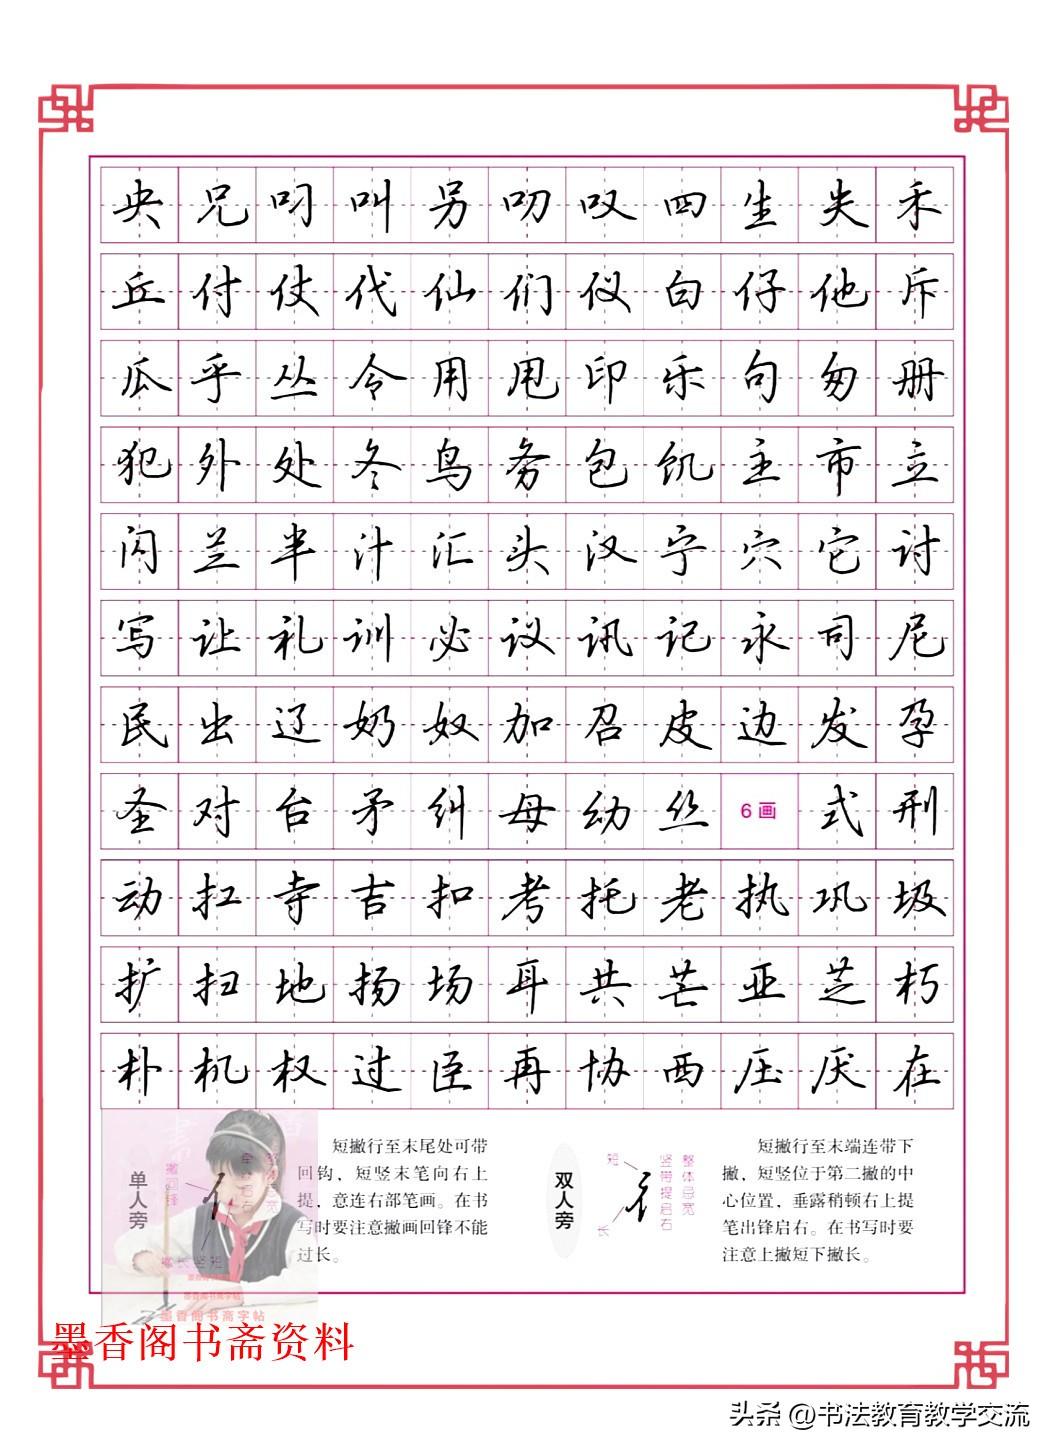 央兄叼叫另叨叹四生失禾
丘付仗代仙们仪白仔他斥
瓜乎丛令用甩印乐句匆册
犯外处冬鸟务包饥主市立
闪兰半汁汇头汉宁穴它讨
写让礼训必议讯记永司尼
民出辽奶奴加召皮边发孕
圣对台矛纠母幼丝6画式刑
动扛寺吉扣考托老执巩圾
扩扫地扬场耳共芒亚芝朽
朴机权过臣再协西压厌在
单人旁
撇回锋
撇长竖短
短撇行至末尾处可带
回钩，短竖末笔向右上
提，意连右部笔画。在书
写时要注意撇画回锋不能
过长。
双人旁
短
长
竖带提启右
整体忌宽
短撇行至末端连带下
撇，短竖位于第二撇的中
心位置，垂露稍顿右上提
笔出锋启右。在书写时要
注意上撇短下撇长。
墨香阁书斋字帖
墨香阁书斋字帖
墨香阁书斋资料
头条 @书法教育教学交流